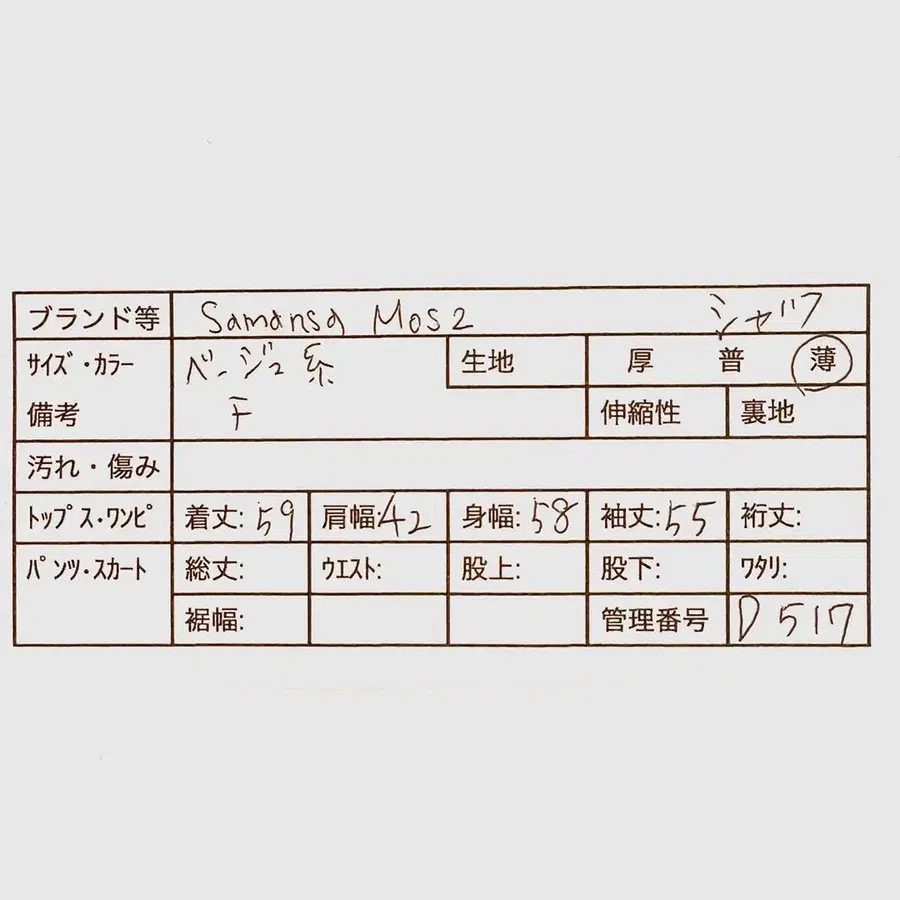 ブランド等 Samansa Mos2 シャツ
サイズ・カラー ベージュ系 生地 厚 普 薄
備考 F 伸縮性 裏地
汚れ・傷み
トップス・ワンピ 着丈: 59 肩幅: 42 身幅: 58 袖丈: 55 裄丈:
パンツ・スカート 総丈: ウエスト: 股上: 股下: ワタリ:
裾幅: 管理番号 D 517